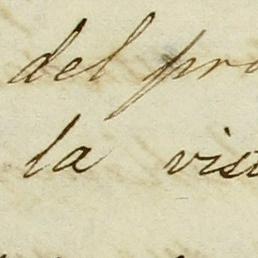 del pro
la vist